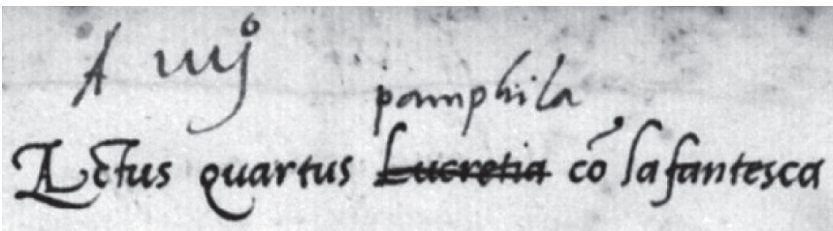 A iiijº
pamphila
Actus quartus Lucretia cō la fantesca